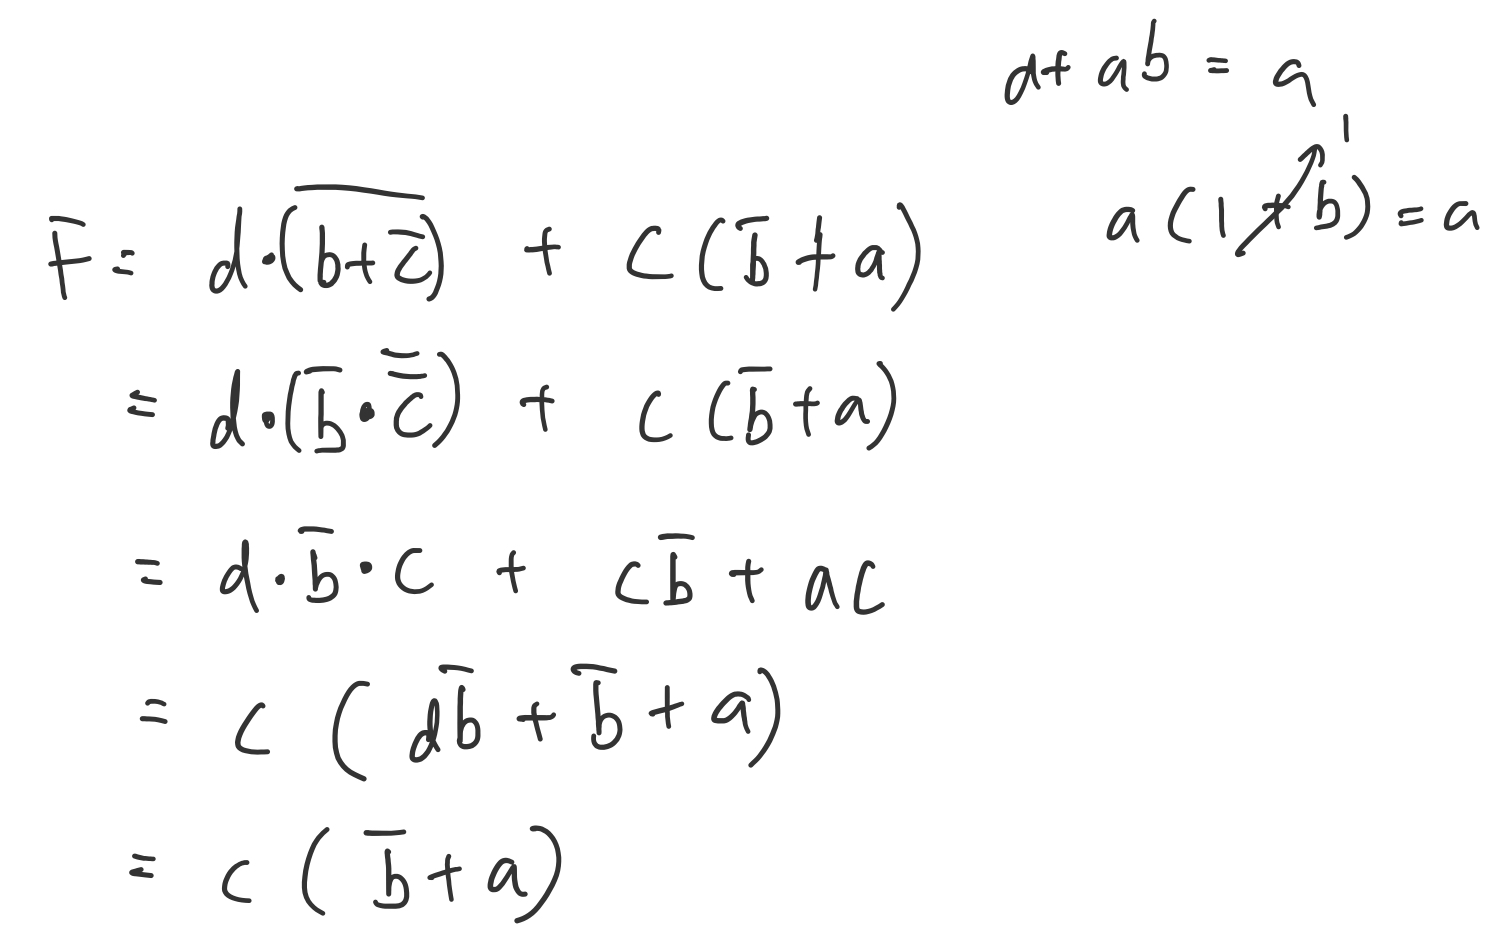 a + ab = a
a (1 + b) = a
1
F = d·(b + c̅)̅ + c (b̅ + a)
= d·(b̅·c̿) + c (b̅ + a)
= d·b̅·c + cb̅ + ac
= c (db̅ + b̅ + a)
= c (b̅ + a)